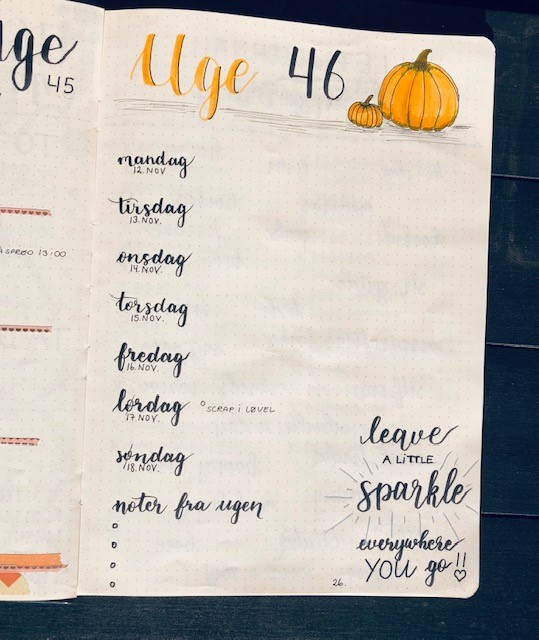 uge
45
ASPRBO 13:00
Uge 46
mandag
12. NOV
tirsdag
13. NOV.
onsdag
14. NOV.
torsdag
15. NOV.
fredag
16. NOV.
lørdag
17. NOV.
° SCRAP I LØVEL
søndag
18. NOV.
noter fra ugen
leave
A LiTTLE
sparkle
everywhere
YOU go!!
26.